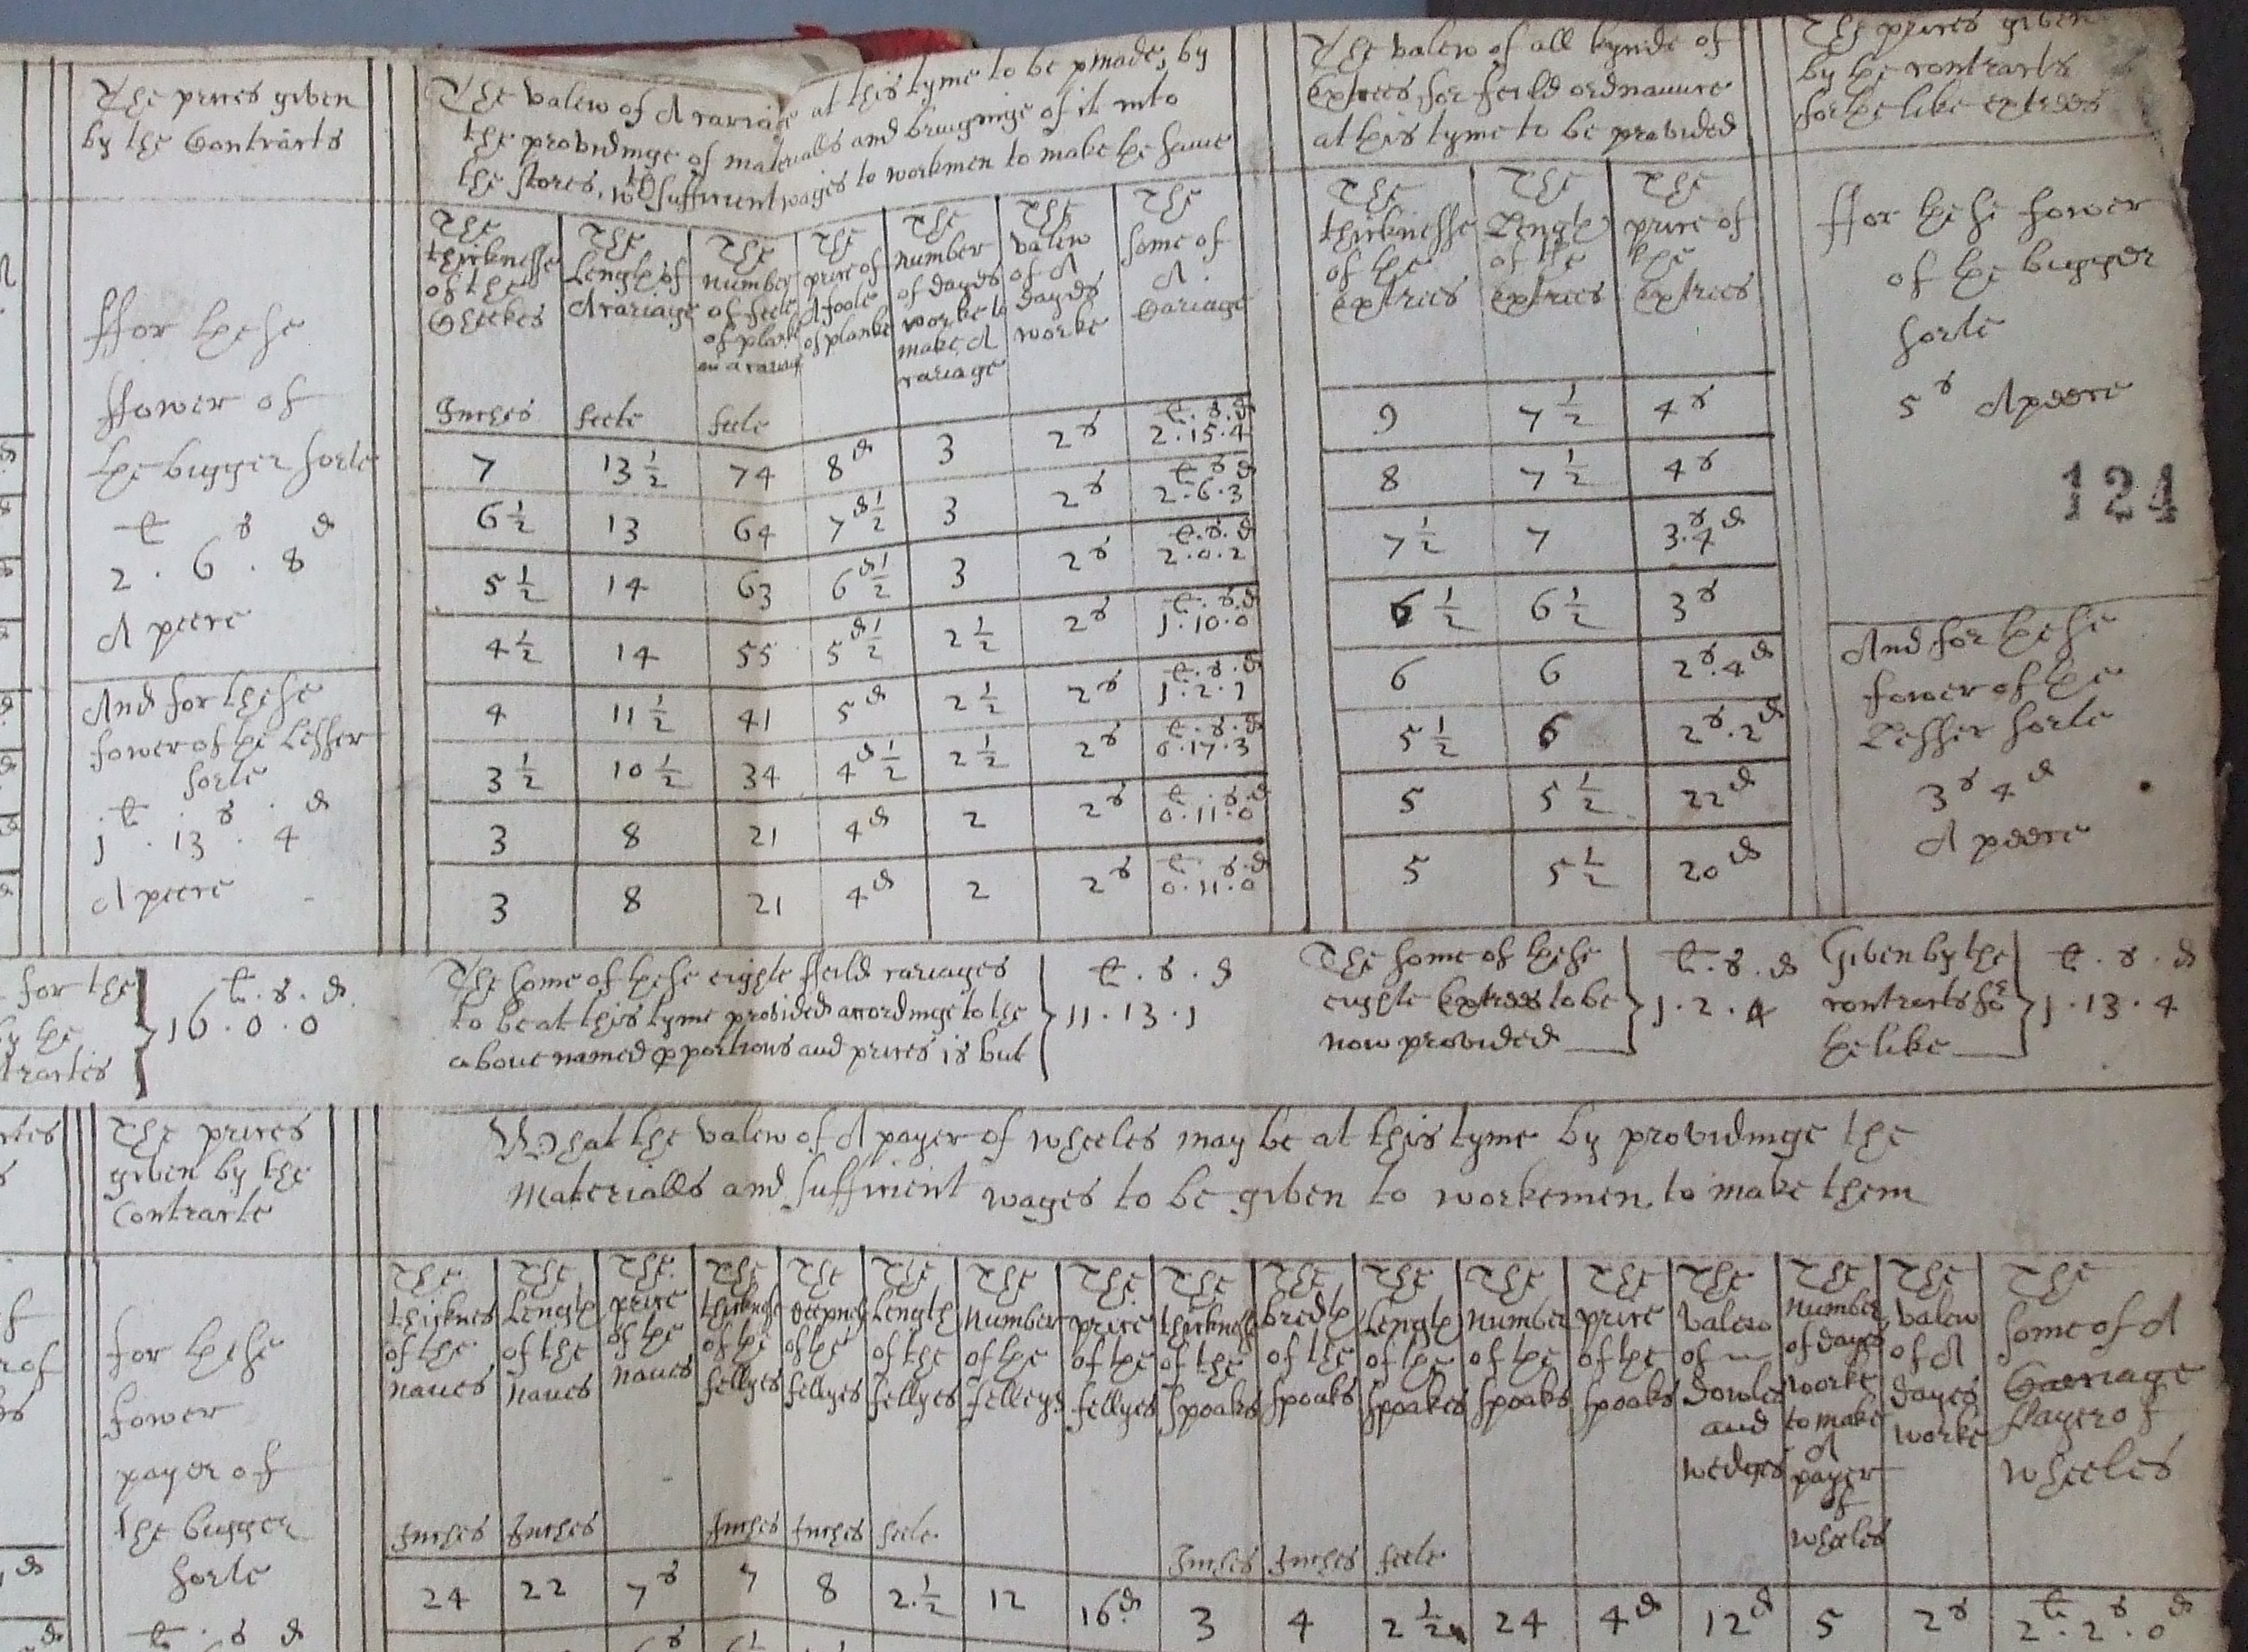 The prices given
by the Contracts
ffor these
ffower of
the bigger sorte
£ s d
2 . 6 . 8
A peece
And for these
fower of the Lesser
sorte
£ . s . d
1 . 13 . 4
A peece
The valew of A cariage at this tyme to be pmade, by
the providinge of materialls and bringinge of it into
the stores, wth sufficient wages to workmen to make the same
The thicknesse of the Cheekes
The Length of A cariage
The number of feete of planke in a cariag
The price of A foote of planke
The Number of dayes worke to make A cariage
The valew of A dayes worke
The some of A Cariage
Inches feete feete
7 13 1/2 74 8d 3 2s £ . s . d 2 . 15 . 4
6 1/2 13 64 7d 1/2 3 2s £ s d 2 . 6 . 3
5 1/2 14 63 6d 1/2 3 2s £ . s . d 2 . 0 . 2
4 1/2 14 55 5d 1/2 2 1/2 2s £ . s . d 1 . 10 . 0
4 11 1/2 41 5d 2 1/2 2s £ . s . d 1 . 2 . 1
3 1/2 10 1/2 34 4d 1/2 2 1/2 2s £ . s . d 0 . 17 . 3
3 8 21 4d 2 2s £ . s . d 0 . 11 . 0
3 8 21 4d 2 2s £ . s . d 0 . 11 . 0
The valew of all kynde of
extrees for feild ordnaunce
at this tyme to be provided
The thicknesse of the extrees
The Length of the extrees
The price of the extrees
9 7 1/2 4s
8 7 1/2 4s
7 1/2 7 3s . 4d
6 1/2 6 1/2 3s
6 6 2s . 4d
5 1/2 6 2s . 2d
5 5 1/2 22d
5 5 1/2 20d
The prices given
by the contracts
for the like extrees
ffor these fower
of the bigger
sorte
5s A peece
124
And for these
fower of the
Lesser sorte
3s 4d
A peece
for the
by the
£ . s . d
16 . 0 . 0
The some of these eighte ffeild cariages
to be at this tyme provided accordinge to the
above named pportions and prices is but
£ . s . d
11 . 13 . 1
The some of these
eighte Extrees to be
now provided
£ . s . d
1 . 2 . 4
Given by the
contracts for
the like
£ . s . d
1 . 13 . 4
The prices
given by the
Contracte
for these
fower
payer of
the bigger
sorte
£ . s d
What the valew of A payer of wheeles may be at this tyme by providinge the
Materialls and sufficient wages to be given to workemen to make them
The thicknes of the naves
The Length of the Naves
The price of the naves
The thicknesse of the fellyes
The deepnes of the fellyes
The Length of the fellyes
The Number of the felleys
The price of the fellyes
The thicknesse of the spoakes
The bredth of the spoaks
The Length of the spoakes
The Number of the spoaks
The price of the spoaks
The Valew of Dowles and wedges
The Number of dayes worke to make A payer of wheeles
The Valew of A dayes worke
The some of A Carriage Payer of wheeles
Inches Inches Inches Inches feete Inches Inches feete
24 22 7s 7 8 2 . 1/2 12 16d 3 4 2 1/2 24 4d 12d 5 2s £ s d 2 . 2 . 0